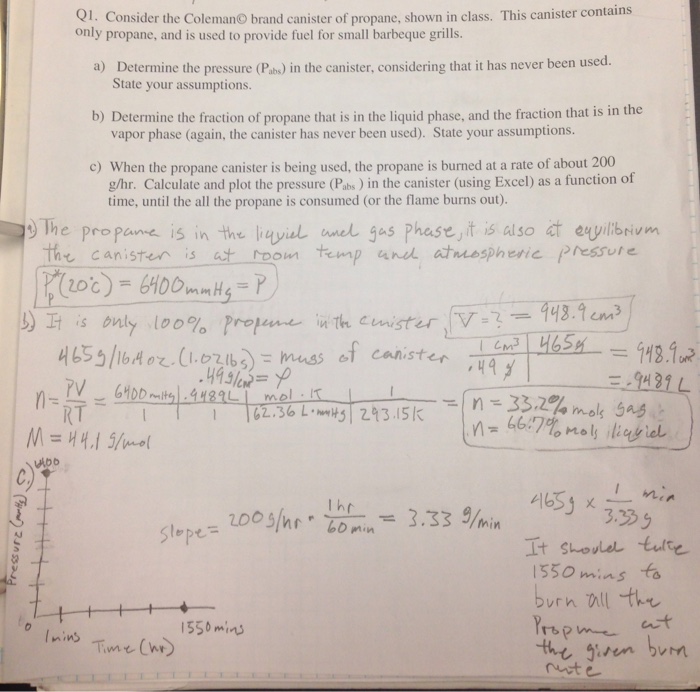 Q1. Consider the Coleman© brand canister of propane, shown in class. This canister contains
only propane, and is used to provide fuel for small barbeque grills.
a) Determine the pressure (Pabs) in the canister, considering that it has never been used.
State your assumptions.
b) Determine the fraction of propane that is in the liquid phase, and the fraction that is in the
vapor phase (again, the canister has never been used). State your assumptions.
c) When the propane canister is being used, the propane is burned at a rate of about 200
g/hr. Calculate and plot the pressure (Pabs) in the canister (using Excel) as a function of
time, until the all the propane is consumed (or the flame burns out).
a) The propane is in the liquid and gas phase, it is also at equilibrium
the canister is at room temp and atmospheric pressure
P*p(20°C) = 6400mmHg = P
b) It is only 100% propane in the canister V=? = 948.9cm³
465g/16.4oz. (1.02lbs) = mass of canister 1cm³ | 465g = 948.9cm³
.49g/cm³ = ρ .49g = .9489L
n = PV/RT = 6400mmHg | .9489L | mol·K | 1 = n = 33.2% mols gas
1 | 1 | 62.36 L·mmHg | 293.15K n = 66.7% mols liquid
M = 44.1 g/mol
c) 6400
Pressure (mmHg)
slope = 200g/hr · 1hr/60min = 3.33 g/min
465g x 1/3.33g min
It should take
1550 mins to
burn all the
Propane at
the given burn
rate
0 1mins 1550mins
Time (hr)